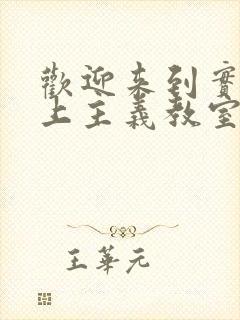 歡迎来到實
上主義教室
王華元